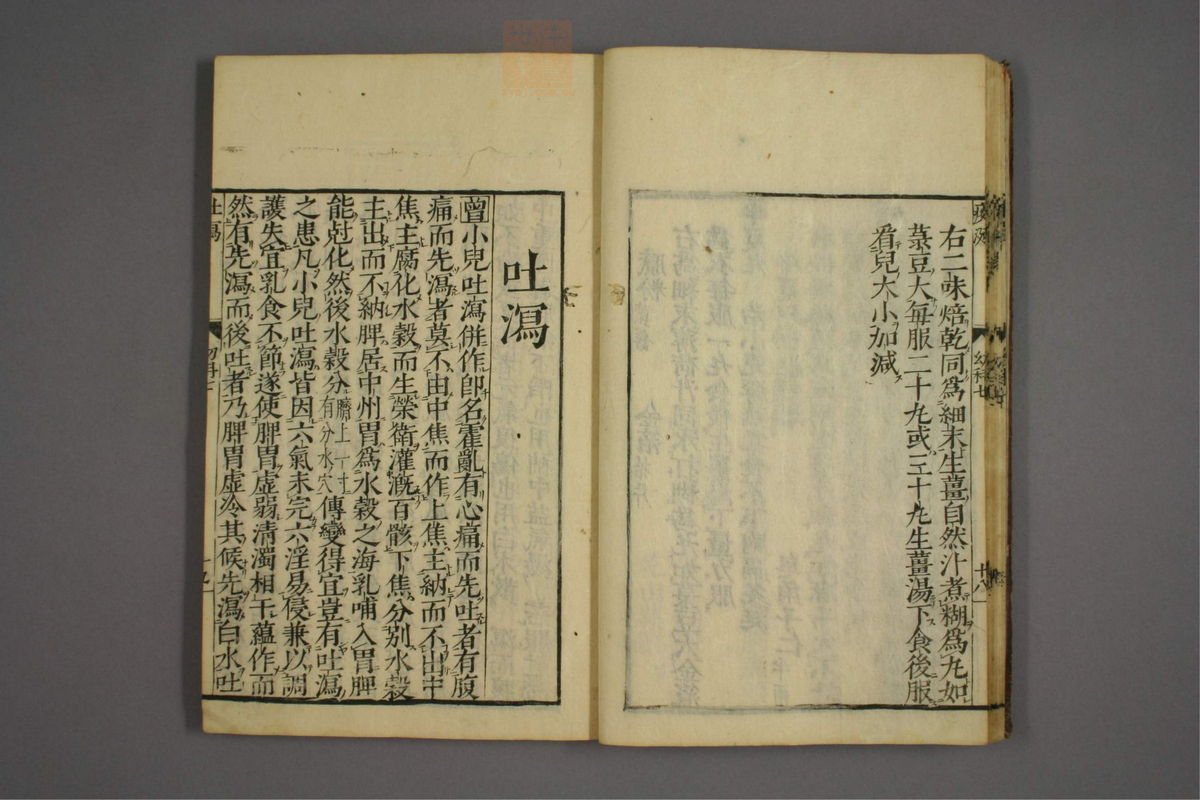 右二味焙乾同爲細末生薑自然汁煮糊爲丸如
菉豆大每服二十丸或三十丸生薑湯下食後服
看兒大小加減
幼科七
十八
吐瀉
小兒吐瀉併作卽名霍亂有心痛而先吐者有腹
痛而先瀉者莫不由中焦而作上焦主納而不出中
焦主腐化水穀而生榮衛灌漑百骸下焦分別水穀
主出而不納脾居中州胃爲水穀之海乳哺入胃脾
能尅化然後水穀分臍上一寸有分水穴傳變得宜豈有吐瀉
之患凡小兒吐瀉皆因六氣未完六淫易侵兼以調
護失宜乳食不節遂使脾胃虛弱清濁相干蘊作而
然有先瀉而後吐者乃脾胃虛冷其候先瀉白水吐
吐瀉